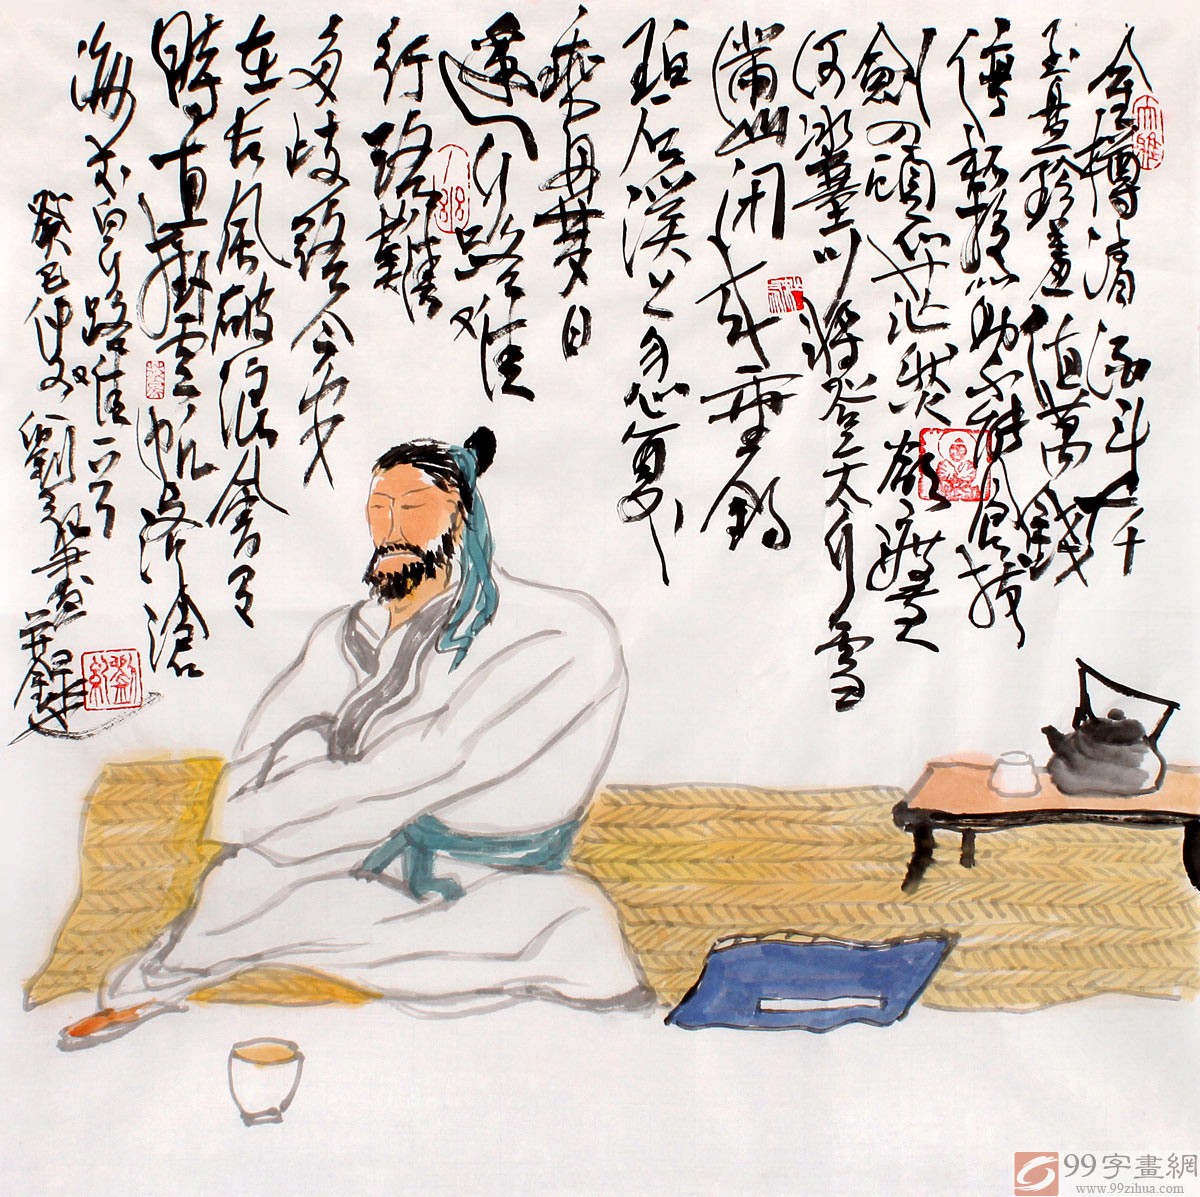 金樽清酒斗十千
玉盤珍羞值萬錢
停杯投箸不能食拔
劍四顧心茫然欲渡黃
河冰塞川將登太行雪
滿山閑来垂釣
碧溪上忽復
乘舟夢日
邊行路难
行路難
多岐路今安
在长風破浪會有
時直掛雲帆济滄
海 李白行路难一首
癸巳仲夏 劉紀畫
并錄
99字畫網
www.99zihua.com